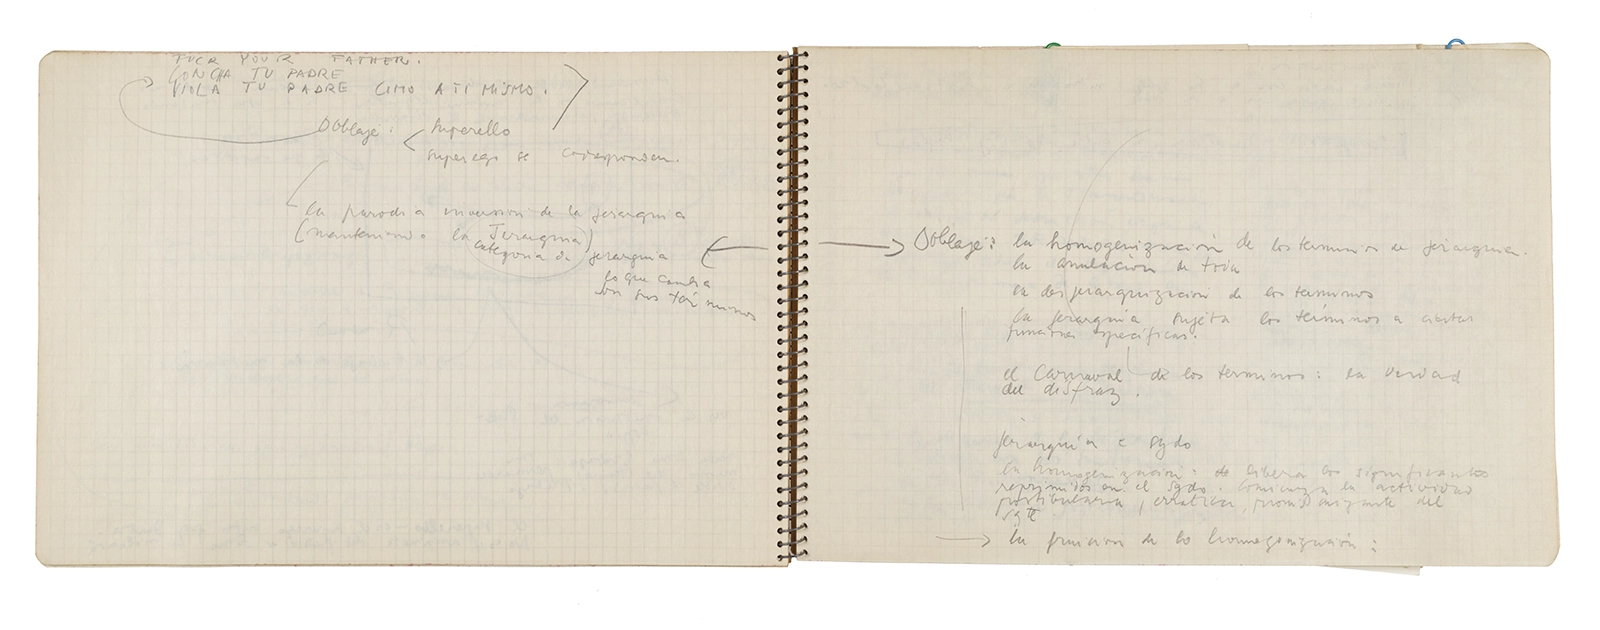 FUCK YOUR FATHER.
CONCHA TU PADRE
VIOLA TU PADRE COMO A TI MISMO.
Doblaje: Superello
superego se corresponden.
la parodia inversión de la jerarquía
(manteniendo la Jerarquía)
categoría de jerarquía
lo que cambia
son sus términos
Doblaje: la homogenización de los terminos de jerarquia.
la anulación de toda
la desjerarquización de los terminos
la jerarquía sujeta los términos a ciertas
funciones específicas.
el Carnaval de los terminos: la verdad
del disfraz.
jerarquía = sgdo
la homogenización: se libera los significantes
reprimidos en el sgdo. Comienza la actividad
postibularia, erratica, del
sgte
la función de la homogenización: